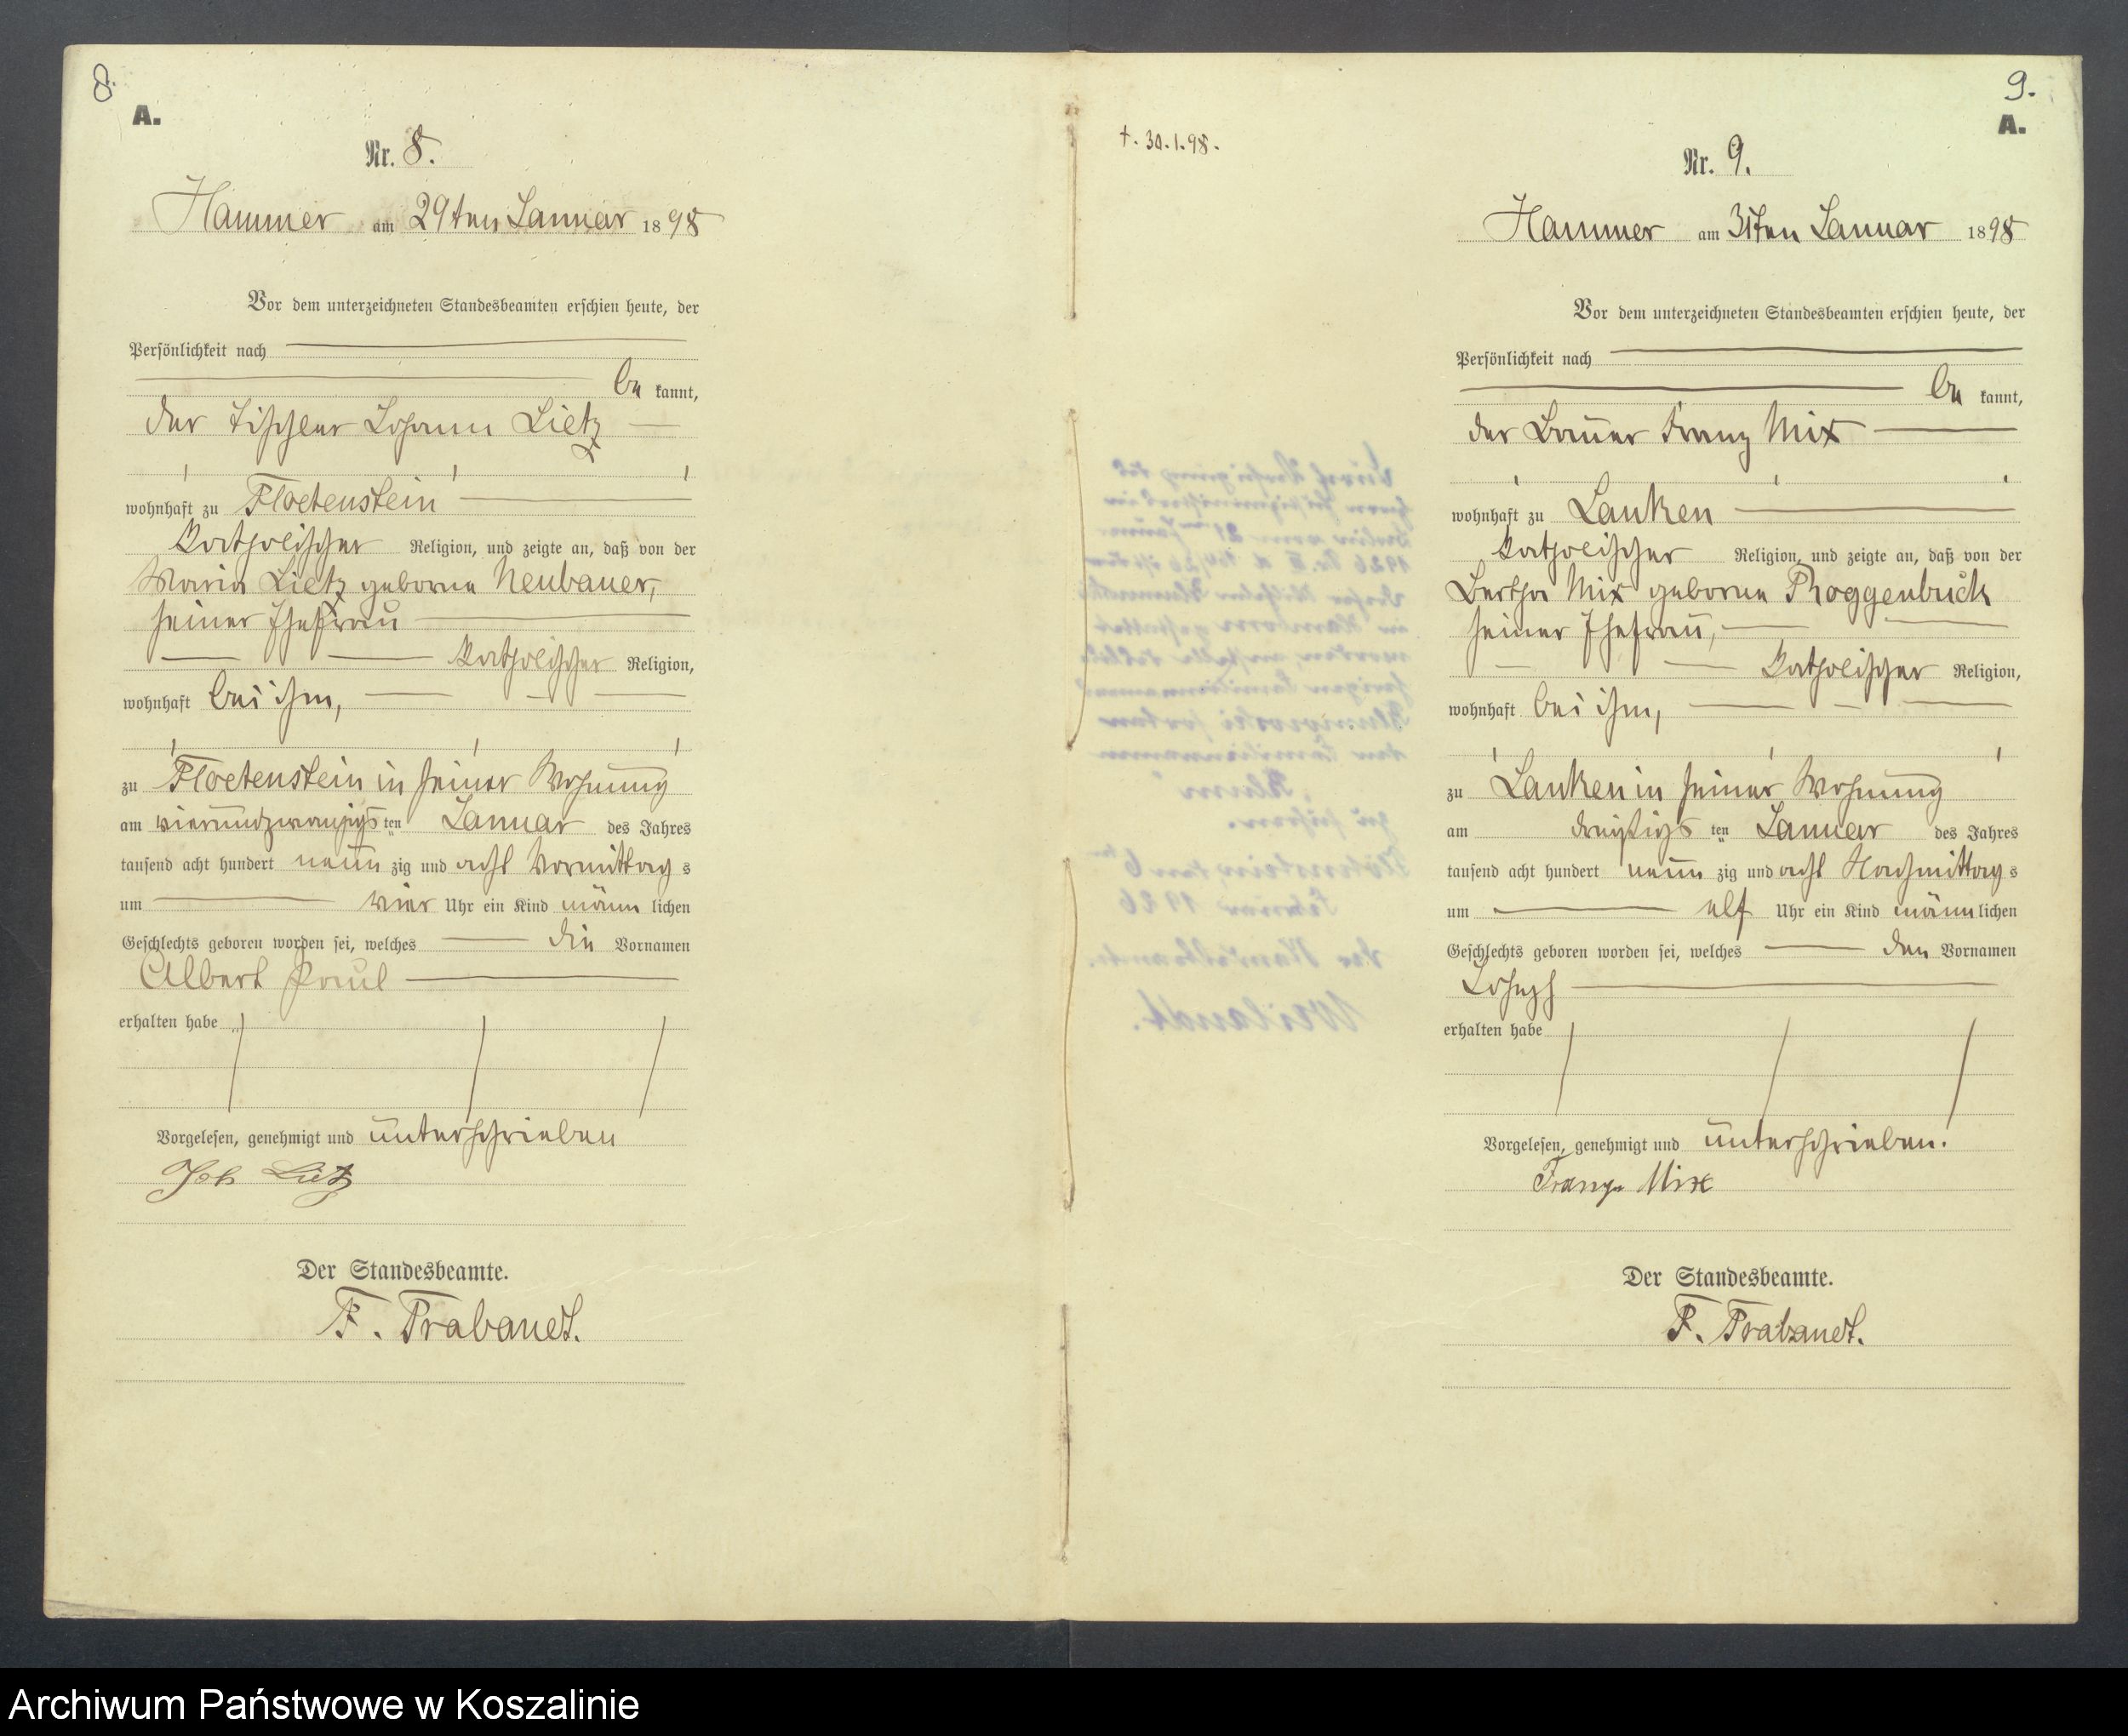 8.
A.
Nr. 8.
Hammer am 29ten Januar 1898
Vor dem unterzeichneten Standesbeamten erschien heute, der
Persönlichkeit nach
be kannt,
der Tischler Johann Lietz
wohnhaft zu Floetenstein
katholischer Religion, und zeigte an, daß von der
Maria Lietz geborne Neubauer,
seiner Ehefrau
katholischer Religion,
wohnhaft bei ihm,
zu Floetenstein in seiner Wohnung
am vierundzwanzigs ten Januar des Jahres
tausend acht hundert neun zig und acht Vormittag s
um vier Uhr ein Kind männ lichen
Geschlechts geboren worden sei, welches die Vornamen
Albert Paul
erhalten habe
Vorgelesen, genehmigt und unterschrieben
Joh Lietz
Der Standesbeamte.
F. Trabandt.
9.
A.
+. 30.1.98.
Nr. 9.
Hammer am 31ten Januar 1898
Vor dem unterzeichneten Standesbeamten erschien heute, der
Persönlichkeit nach
be kannt,
der Bauer Franz Mix
wohnhaft zu Lanken
katholischer Religion, und zeigte an, daß von der
Bertha Mix geborne Roggenbuck
seiner Ehefrau,
katholischer Religion,
wohnhaft bei ihm,
zu Lanken in seiner Wohnung
am dreißigs ten Januar des Jahres
tausend acht hundert neun zig und acht Nachmittag s
um elf Uhr ein Kind männ lichen
Geschlechts geboren worden sei, welches den Vornamen
Joseph
erhalten habe
Vorgelesen, genehmigt und unterschrieben.
Franz Mix
Der Standesbeamte.
F. Trabandt.
Archiwum Państwowe w Koszalinie